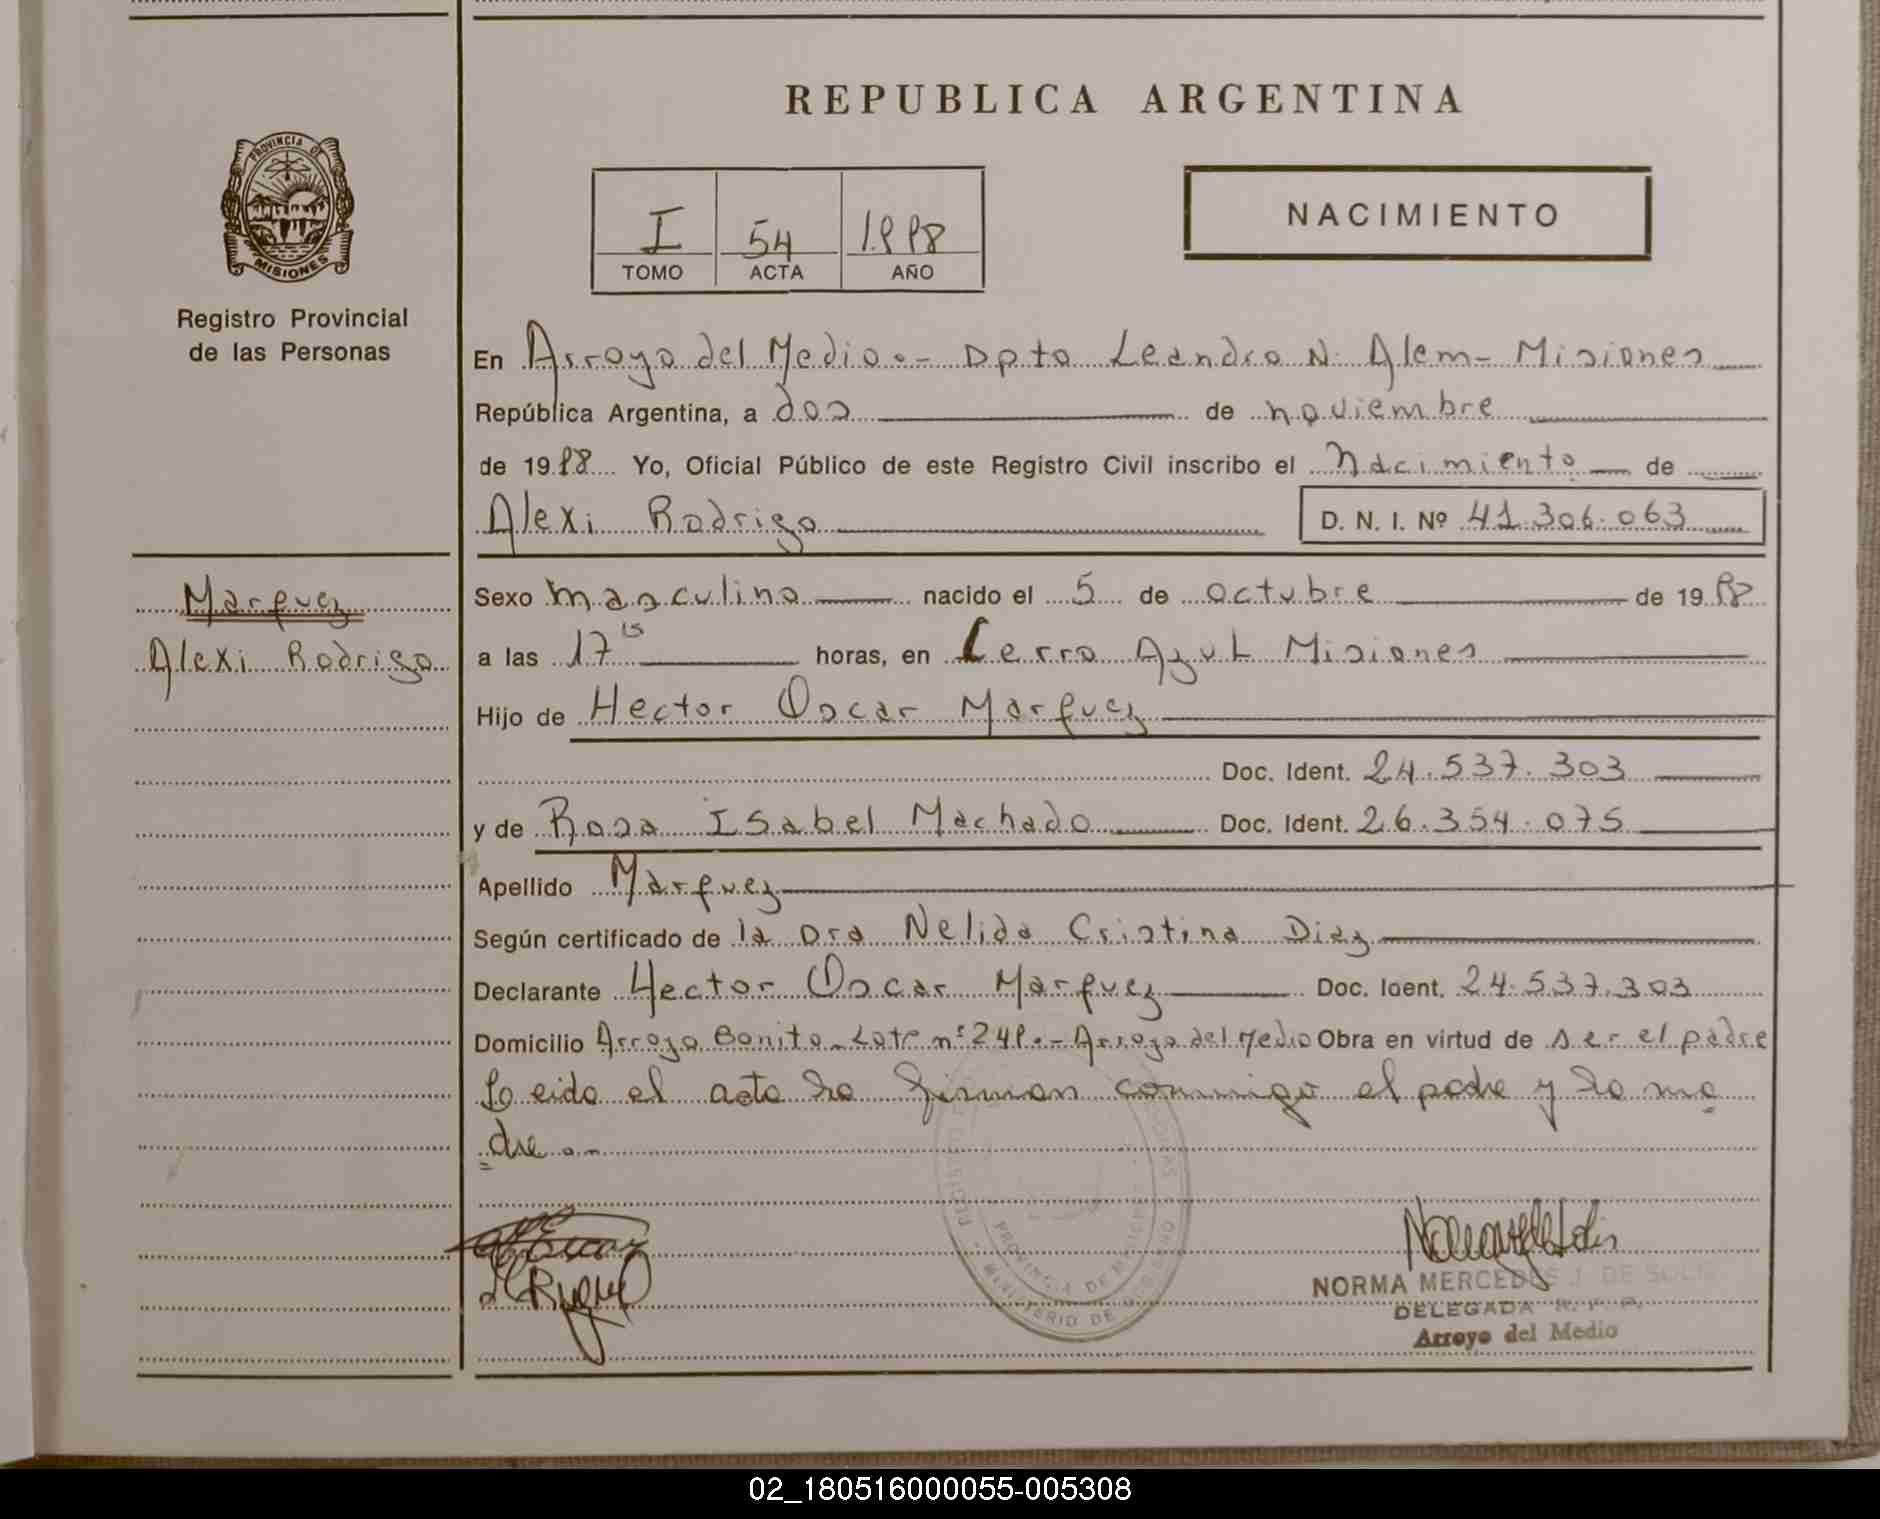 REPUBLICA ARGENTINA
PROVINCIA DE
MISIONES
Registro Provincial
de las Personas
I 54 1998
TOMO ACTA AÑO
NACIMIENTO
En Arroyo del Medio.- Dpto Leandro N. Alem- Misiones
República Argentina, a dos de noviembre
de 1998 Yo, Oficial Público de este Registro Civil inscribo el Nacimiento de
Alexi Rodrigo
D. N. I. Nº 41.306.063
Marquez
Alexi Rodrigo
Sexo masculino nacido el 5 de octubre de 1998
a las 17 15 horas, en Cerro Azul Misiones
Hijo de Hector Oscar Marquez
Doc. Ident. 24.537.303
y de Rosa Isabel Machado Doc. Ident. 26.354.075
Apellido Marquez
Según certificado de la Dra Nelida Cristina Diaz
Declarante Hector Oscar Marquez Doc. Ident. 24.537.303
Domicilio Arroyo Bonito- Lote nº 249.- Arroyo del Medio Obra en virtud de ser el padre
Leida el acta la firman conmigo el padre y la ma
dre.-
PROVINCIA DE MISIONES
MINISTERIO DE GOBIERNO
NORMA MERCEDES J. DE SOLIS
DELEGADA R. P. P.
Arroyo del Medio
02_180516000055-005308